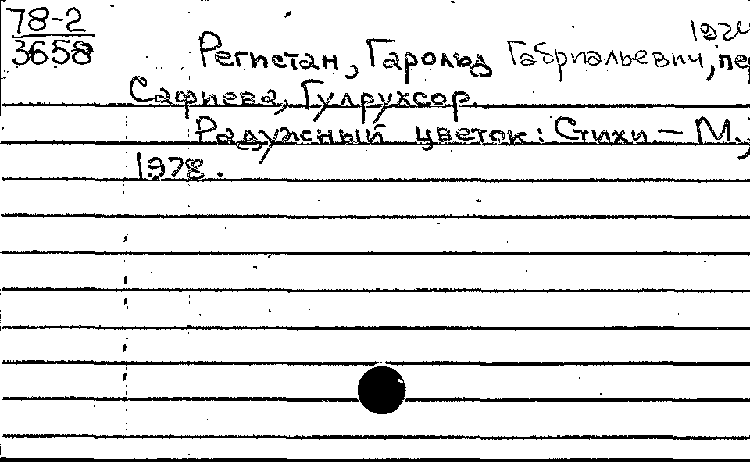 78-2
3658
1924
Регистан, Гарольд Габриэльевич, пер
Сафиева, Гулрухсор
Радужный цветок: Стихи – М.,
1978.